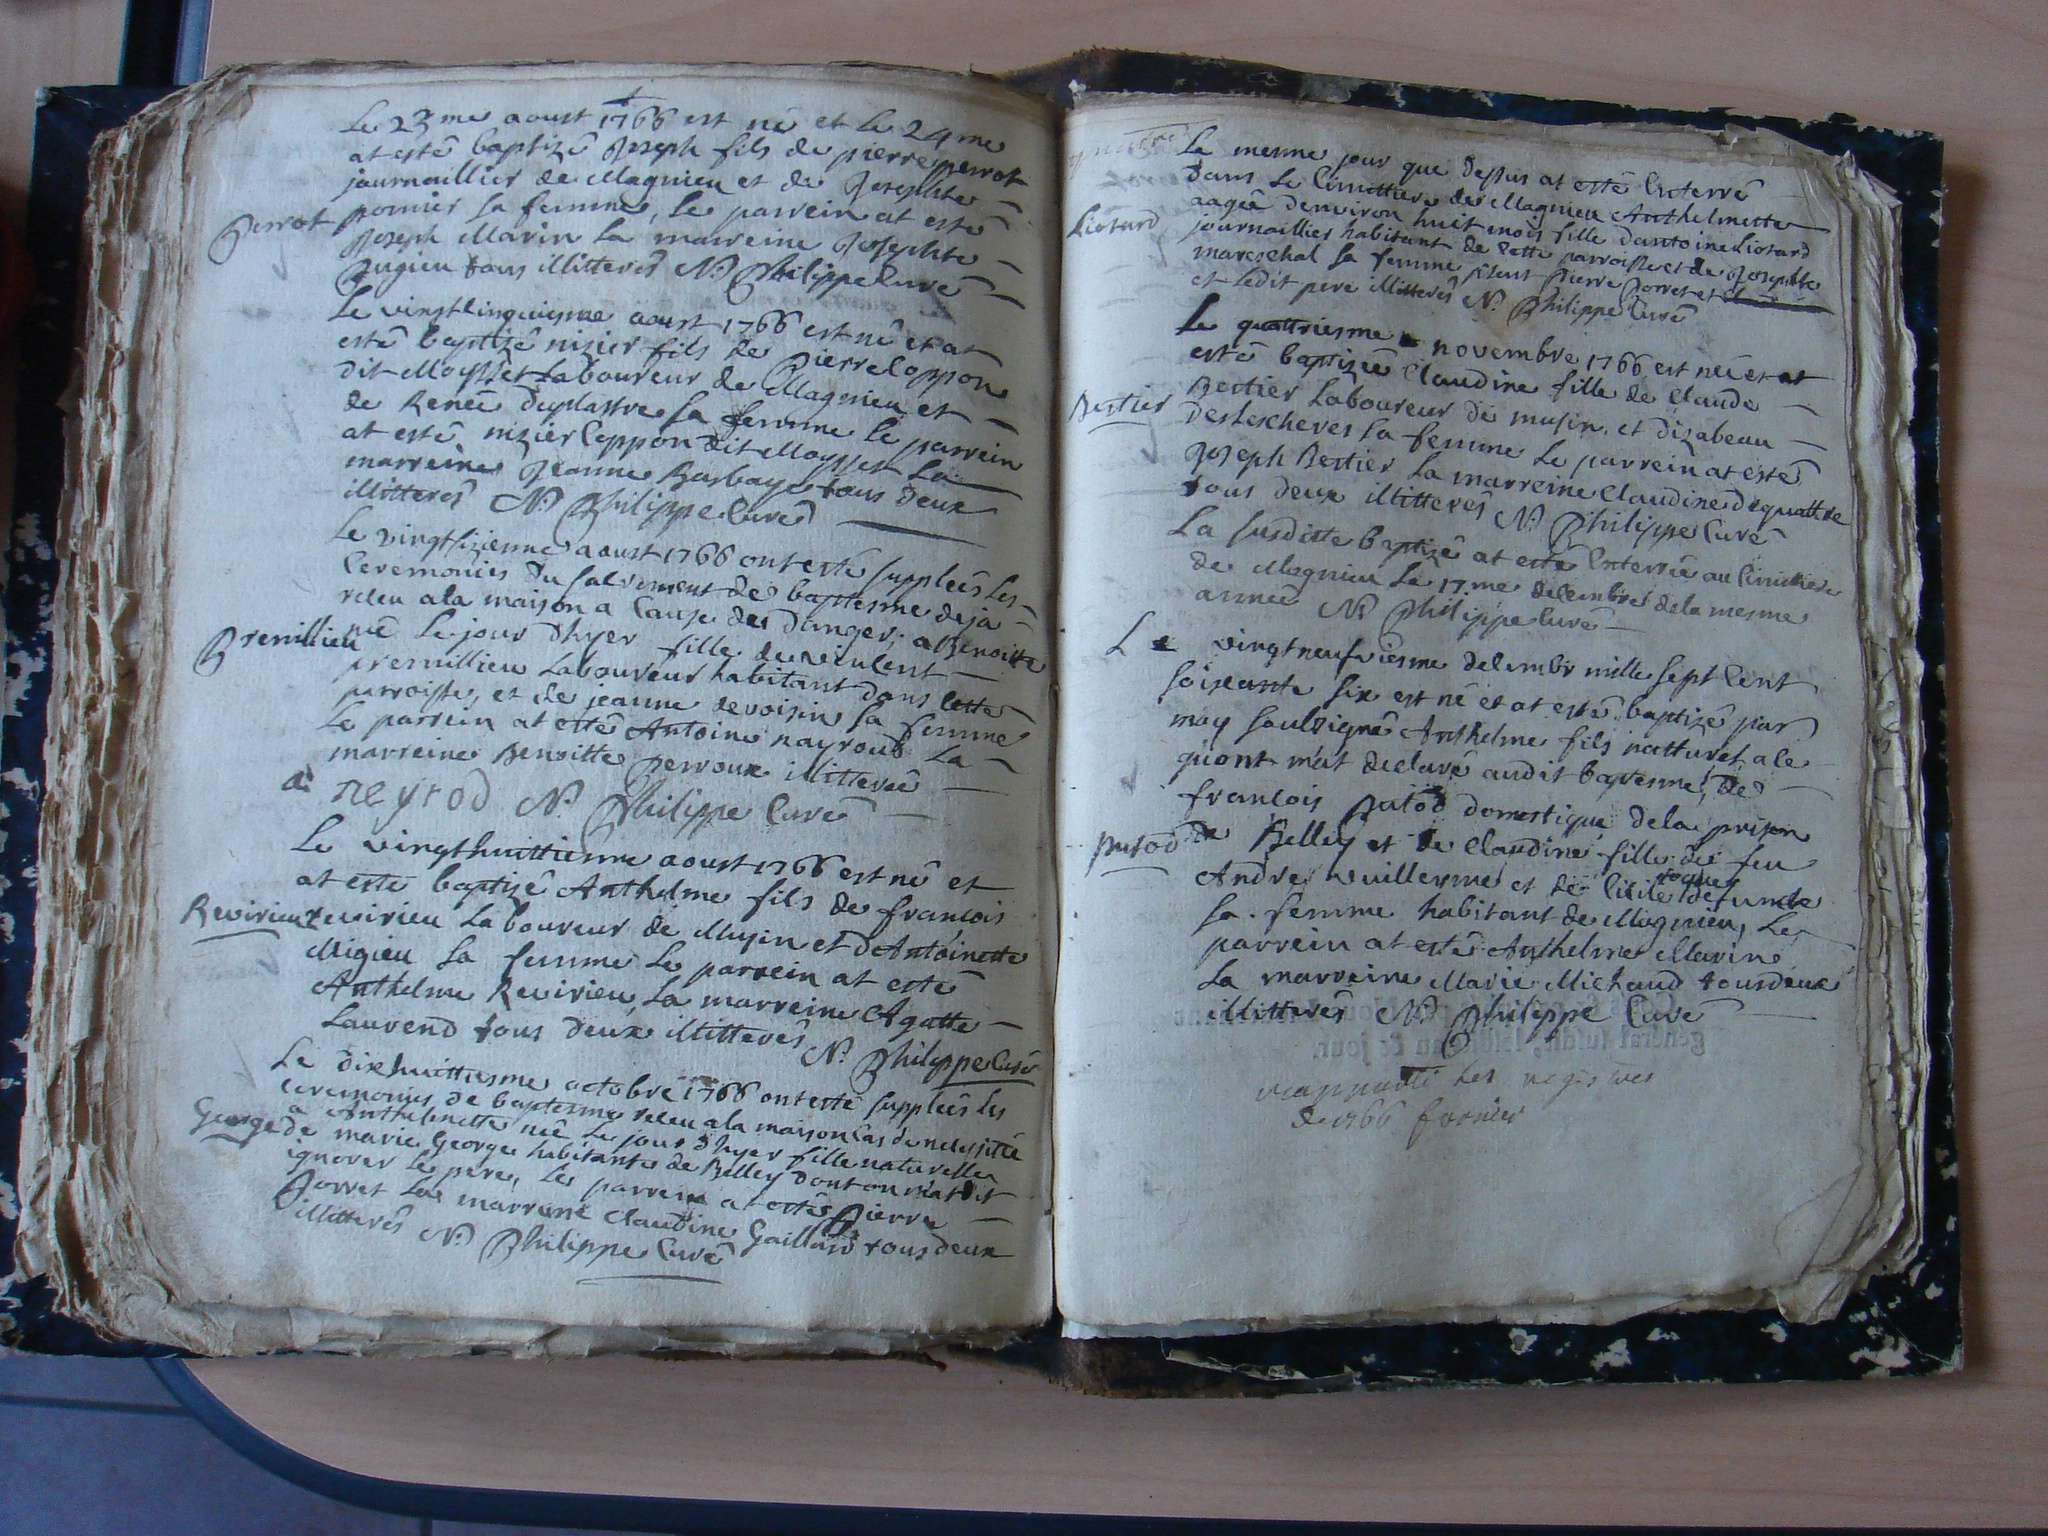 Le 23 me aoust 1766 est né et le 24 me
at esté baptizé Joseph fils de pierre perrot
journaillier de Magnieu et de Josephte
pomier sa femme, le parrein at esté
Perrot
Joseph Marin la marreine Josephte
Pugieu tous illitterés N. Philippe Curé
Le vinstcinquiesme aoust 1766 est né et at
esté baptizé nizier fils de Pierre Coppon
dit Moysset Laboureur de Magnieu et
de Renée Duplastre sa femme le parrein
at esté nizier Coppon dit Moysset La
marreine Jeanne Barbaye tous deux
illitterés N. Philippe Curé
Le vingtsizieme aoust 1766 ont esté suppleés les
Ceremonies du sacrement de baptesme deja
receu a la maison a Cause des danger, a Benoitte
Premillieu
née le jour d'hyer fille de vincent
premillieu Laboureur habitant dans cette
parroisse, et de jeanne devoisin sa femme
Le parrein at esté Antoine nayroud La
marreine Benoitte Perroux illitterée
a neyrod N. Philippe Curé
Le vingthuittiesme aoust 1766 est né et
at esté baptizé Anthelme fils de françois
Revirieu
revirieu Laboureur de Musin et d'Antoinette
Migieu sa femme le parrein at esté
Anthelme Revirieu, La marreine Agatte
Laurend tous deux illitterés
N. Philippe Curé
Le dixhuittiesme octobre 1766 ont esté suppleés les
ceremonies de baptesme receu a la maison Cas de necessité
a Anthelmette née le jour d'hyer fille naturelle
George
de marie George habitante de Belley dont on m'at dit
ignorer le pere, le parrein at esté Pierre
Jorret La marreine Claudine Gaillard tous deux
illitterés N. Philippe Curé
Le mesme jour que dessus at esté Enterré
dans le Cimettiere de Magnieu Anthelmette
aagée denviron huit mois fille dantoine Liotard
Liotard
journaillier habitant de cette parroisse et de Josephte
mareschal sa femme pnt Pierre Jorret et
et ledit pere illitterés N. Philippe Curé
Le quattriesme novembre 1766 est née et at
esté baptizée Claudine fille de Claude
Bertier
Bertier Laboureur de musin, et dizabeau
deslescheres sa femme le parrein at esté
Joseph Bertier la marreine Claudine dequattre
tous deux illitterés N. Philippe Curé
La susditte baptizé at esté Enterrée au Cimettiere
de Magnieu le 17 me decembre de la mesme
année N. Philippe Curé
Le vingtneufviesme decembr mille sept Cent
soixante six est né et at esté baptizé par
moy soubsigné Anthelme fils natturel, a ce
qu'ont m'at declaré audit baptesme, de
françois Putod domestique de la prison
Putod
de Belley et de Claudine fille de feu
André vuillerme et de Cicile roque defunte
sa femme habitant de Magnieu, Le
parrein at esté Anthelme Marin
La marreine Marie Michaud tous deux
illitterés N. Philippe Curé
les registres
de 1766